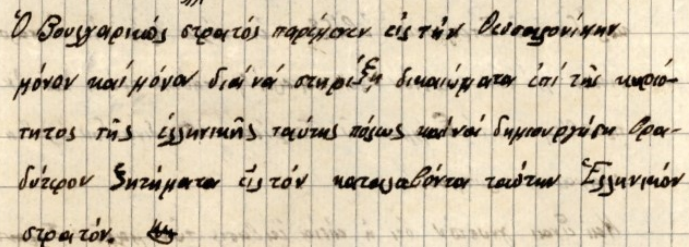 Ὁ Βουλγαρικός στρατός παρέμενεν εἰς τήν Θεσσαλονίκην
μόνον καί μόνον διά νά στηρίξῃ δικαιώματα ἐπί τῆς κυριό-
τητος τῆς ἑλληνικῆς ταύτης πόλεως καί νά δημιουργήσῃ βρα-
δύτερον ζητήματα εἰς τόν καταλαβόντα ταύτην Ἑλληνικόν
στρατόν.